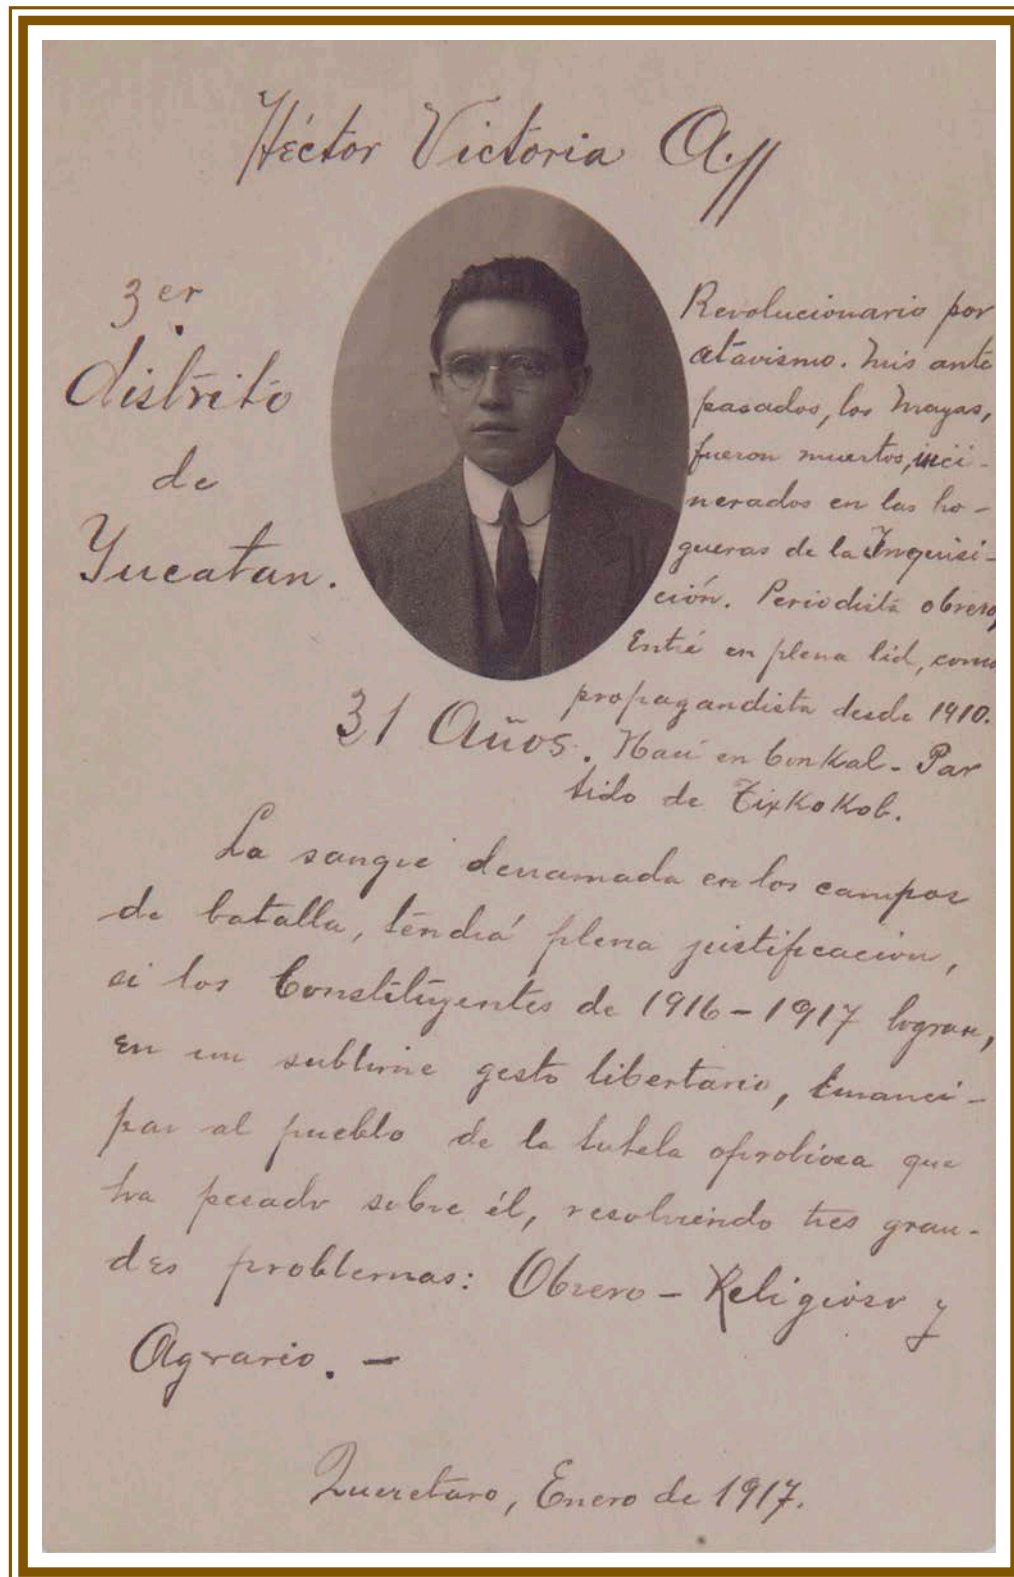 Héctor Victoria A.
3er
distrito
de
Yucatan.
Revolucionario por
atavismo. Mis ante
pasados, los Mayas,
fueron muertos, inci-
nerados en las ho-
gueras de la Inquisi-
ción. Periodista obrero,
Entré en plena lid, como
propagandista desde 1910.
31 Años. Nací en Conkal - Par
tido de Tixkokob.
La sangre derramada en los campos
de batalla, tendrá plena justificación,
si los Constituyentes de 1916-1917 logran,
en un sublime gesto libertario, emanci-
par al pueblo de la tutela oprobiosa que
ha pesado sobre él, resolviendo tres gran-
des problemas: Obrero - Religioso y
Agrario. -
Queretaro, Enero de 1917.